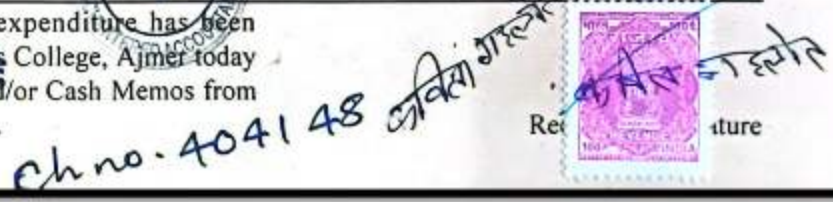 expenditure has been
College, Ajmer today
/or Cash Memos from
Ch no. 404148
कविता गहलोत
गहलोत
100
INDIA